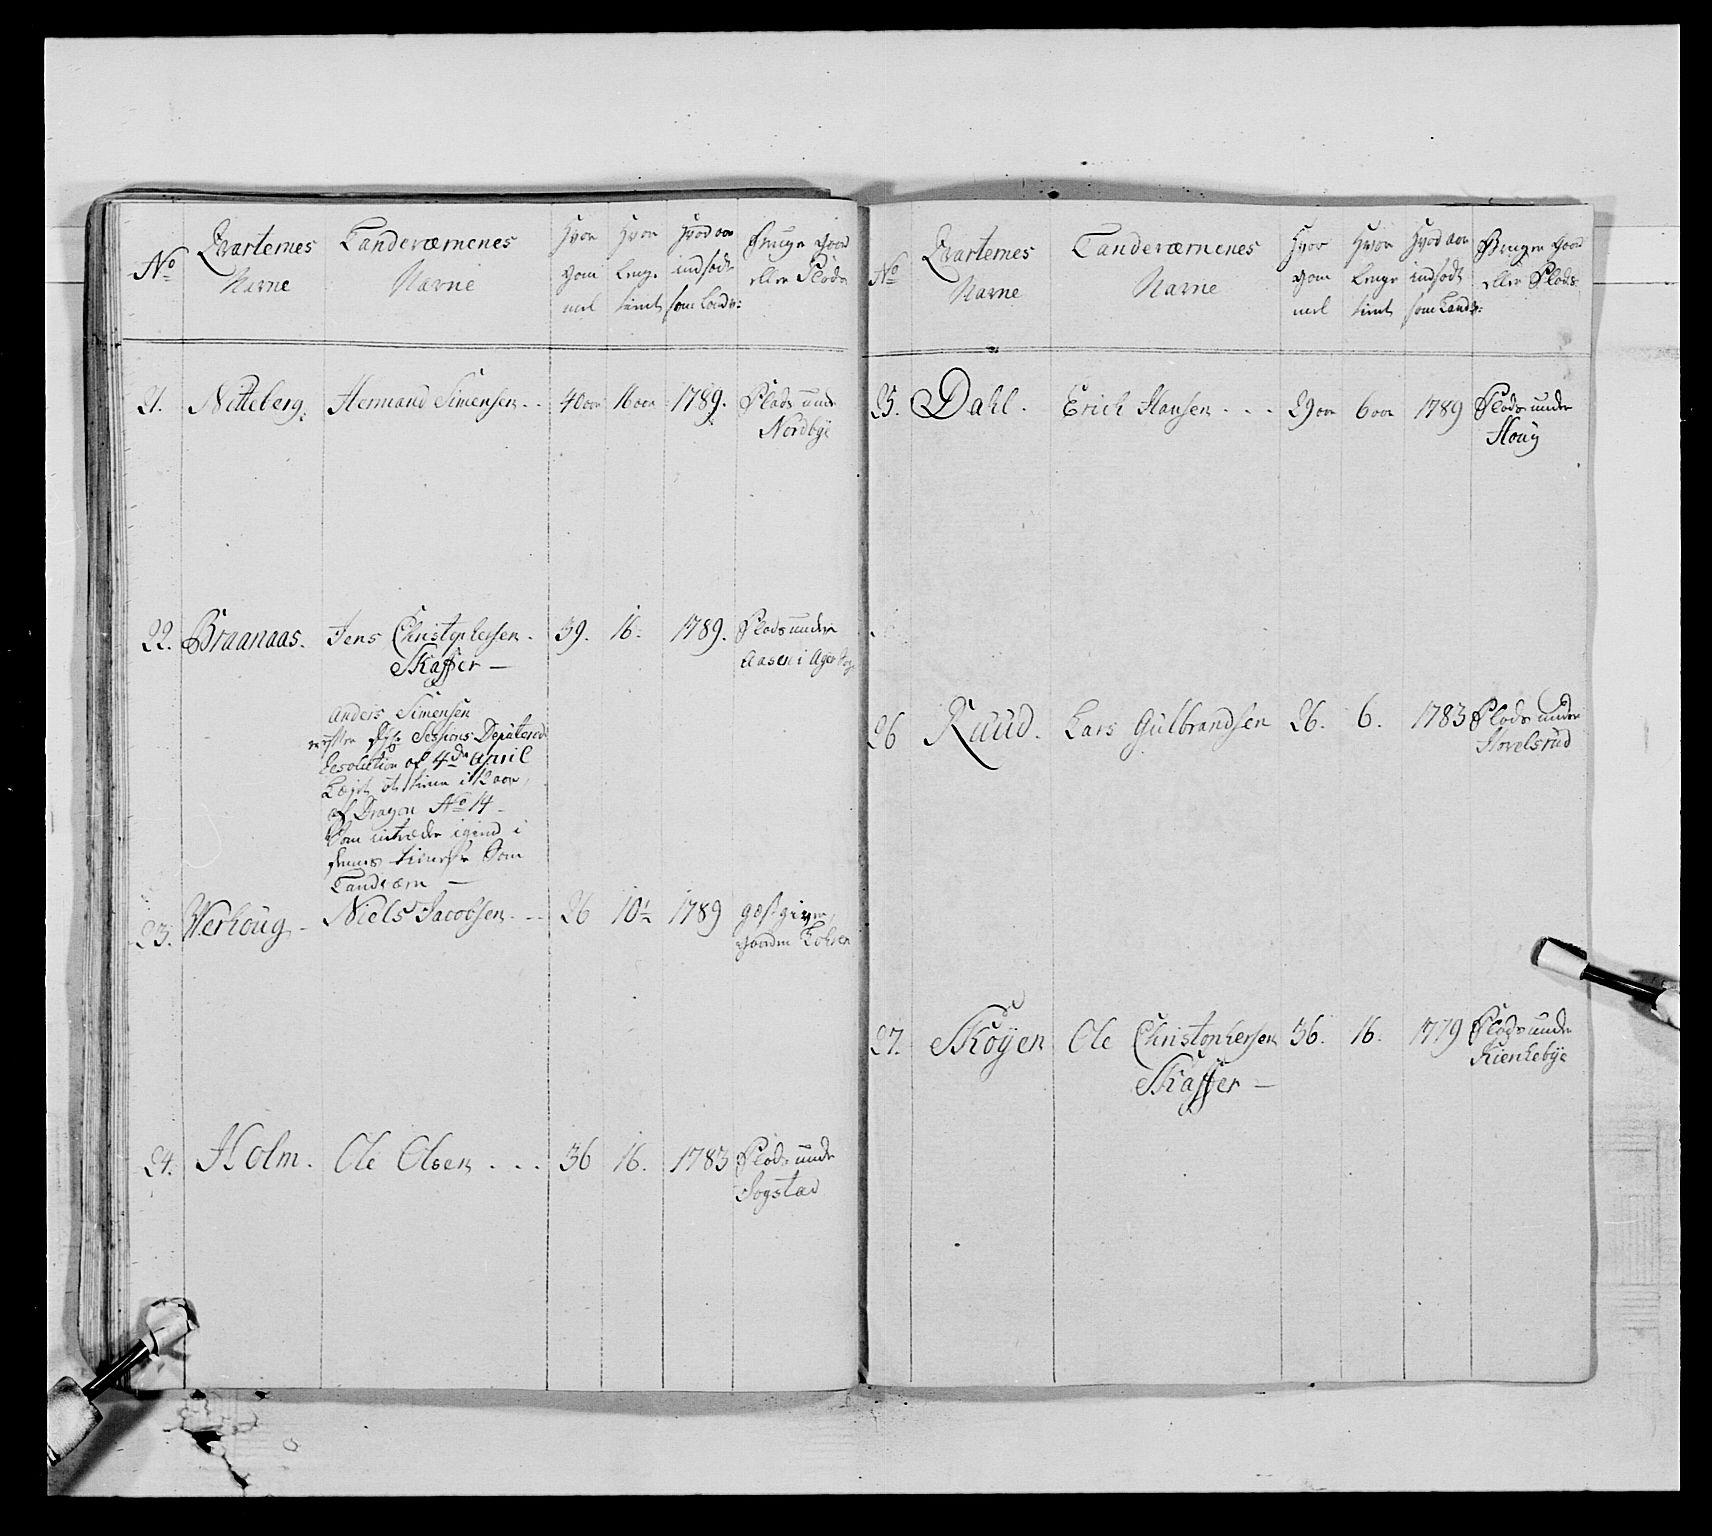 No
Qvarternes
Navne
Landeværnenes
Navne
Hvor
gam
mel
Hvor
lenge
tient
Hvad aar
indsadt
som Landv:
Bruger gaard
eller Plads
21.
Nitteberg.
Hermand Simensen
40 aar
16 aar
1789.
Plads under
Nordbye
22.
Braanaas.
Jens Christophersen
Skaffer
39.
16.
1789.
Plads under
Aasen i Ager
Anders Simensen
Sessions Deputerede
Resolution af 4de April
i 12 aar,
af Dragon No 14
som intræder igiend i
tieneste som
Landværn
23.
Werhoug
Niels Jacobsen
26
10½
1789
giestgiver,
gaarden
24.
Holm.
Ole Olsen
36
16.
1783
Plads under
Sogstad
No
Qvarternes
Navne
Landeværnenes
Navne
Hvor
gam
mel
Hvor
lenge
tient
Hvad aar
indsadt
som Landv:
Bruger gaard
eller Plads
25.
Dahl.
Erich Hansen
29 aar
6 aar
1789
Plads under
Houg
26
Ruud.
Lars Gulbrandsen
26.
6.
1783
Plads under
Hovelsrud
27.
Skøyen
Ole Christophersen
Skaffer
36.
16.
1779
Plads under
Kienkebye